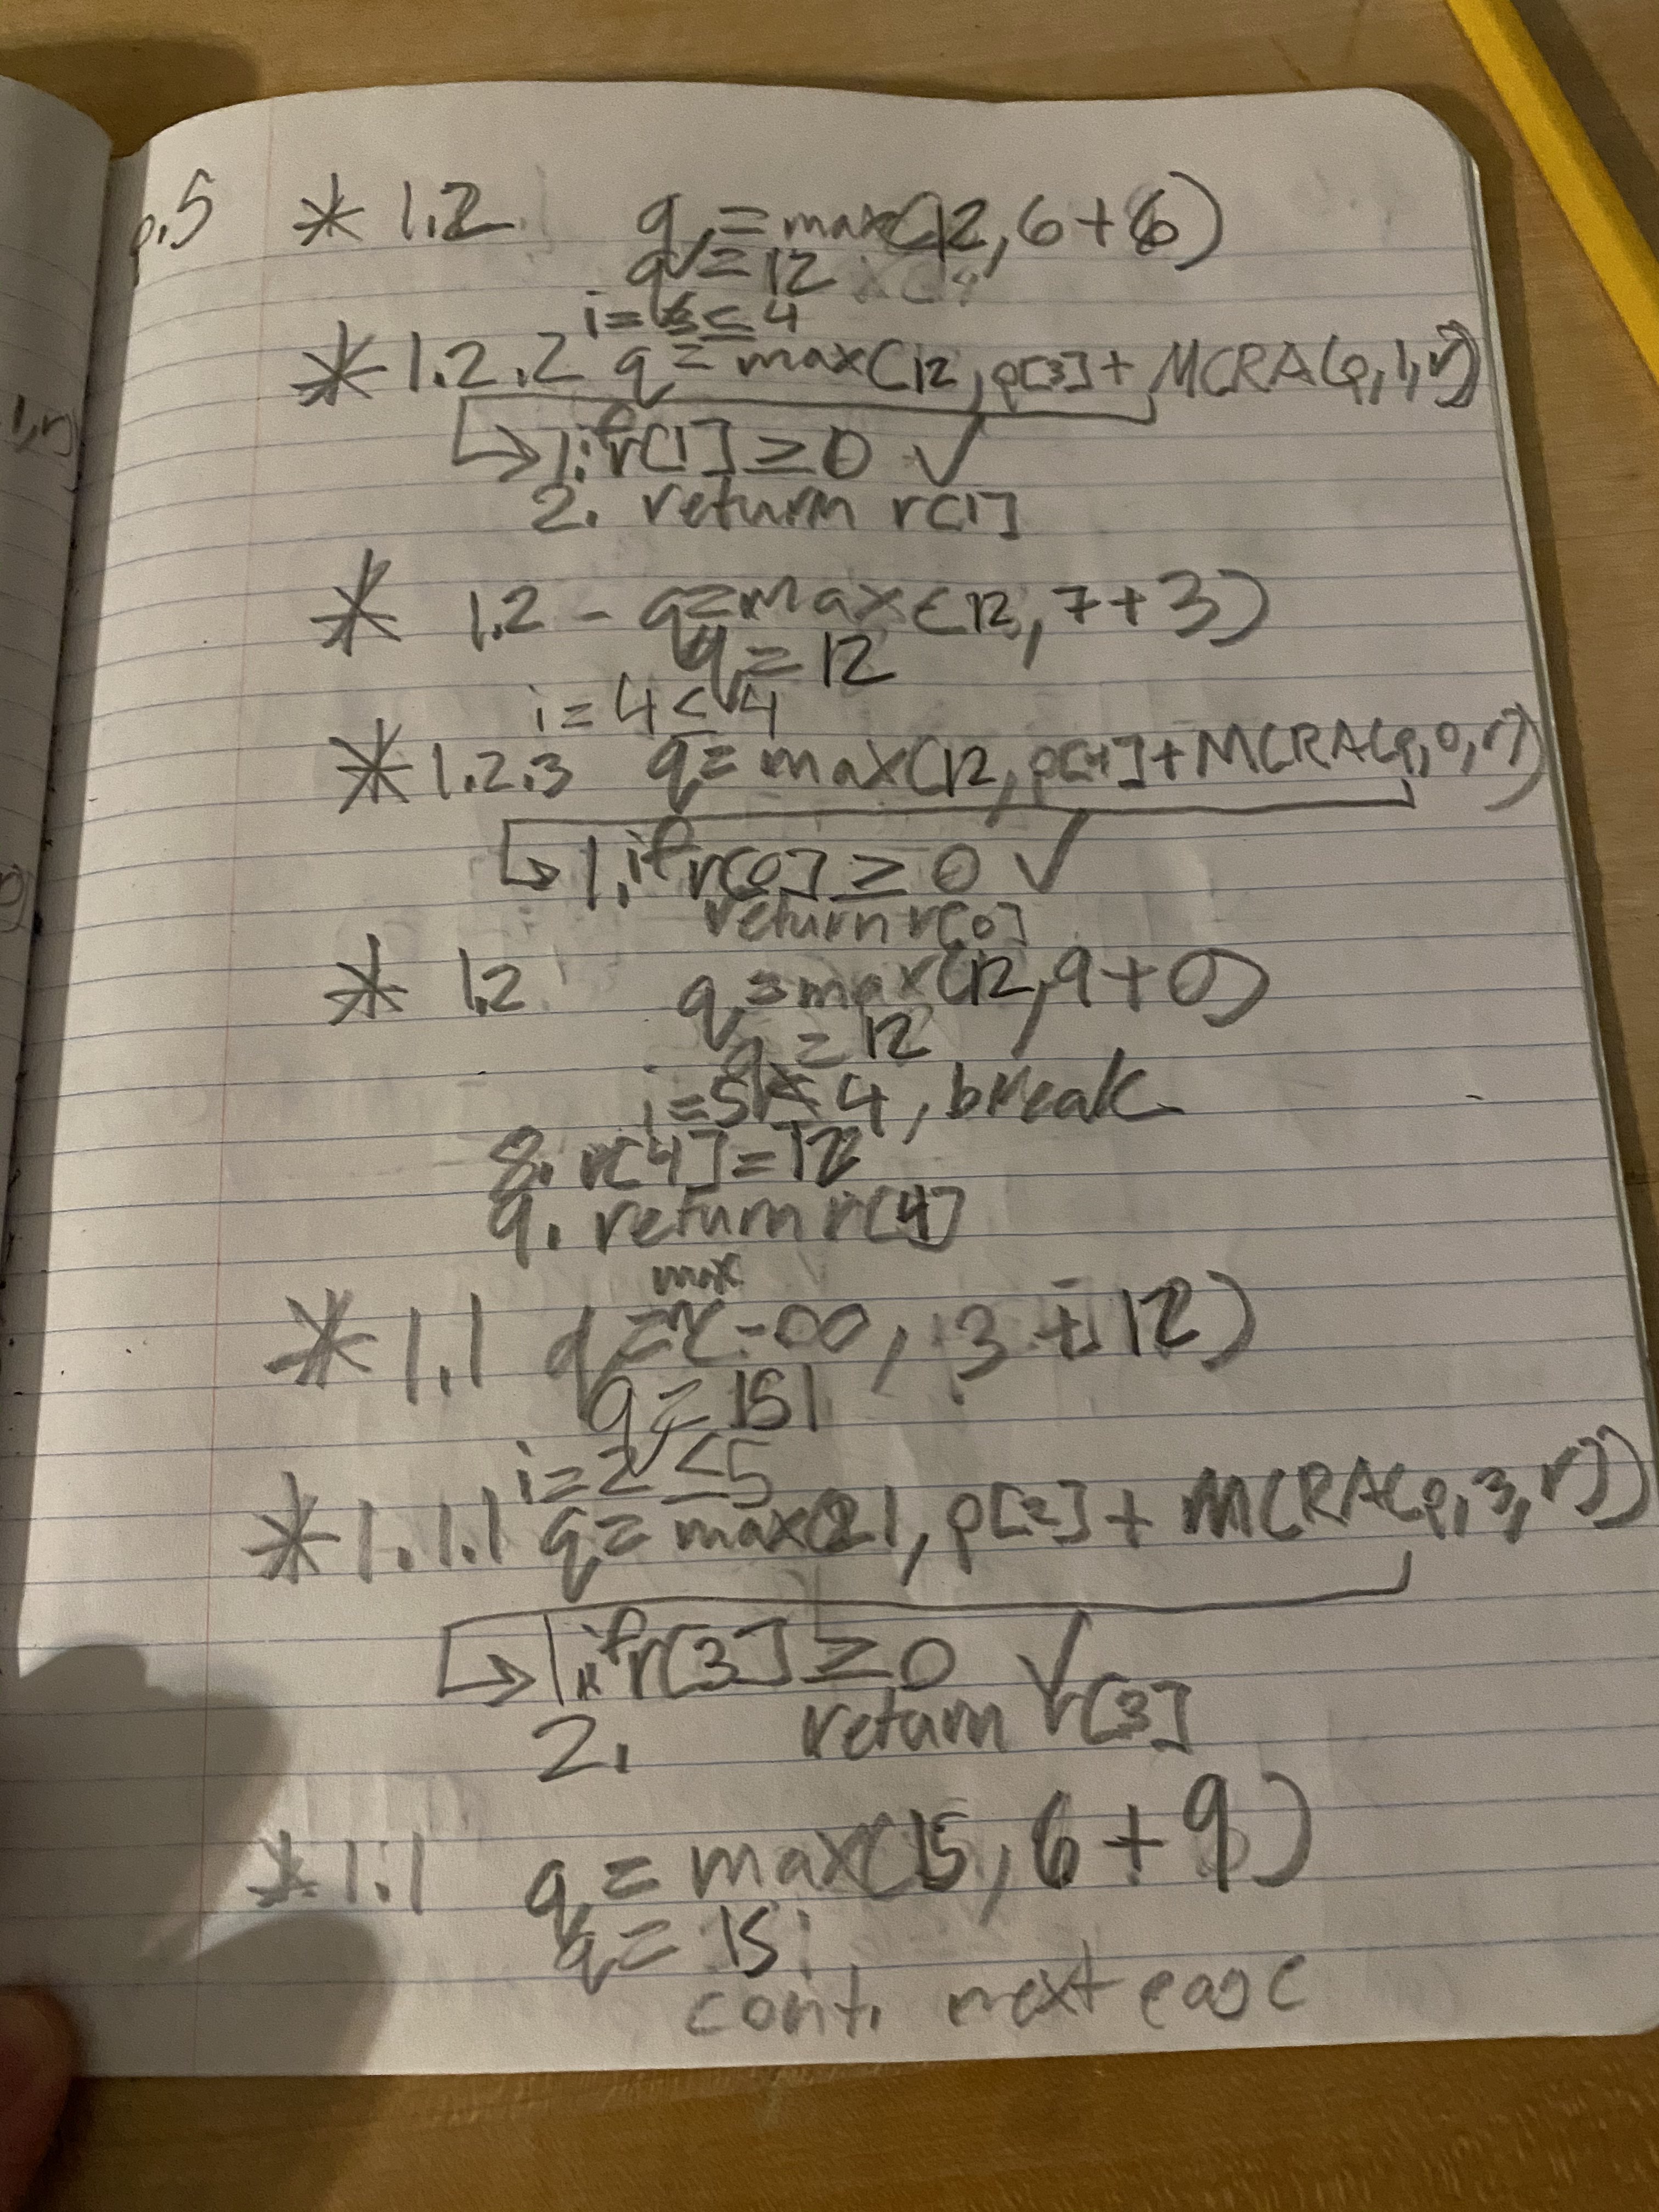 p.5 * 1.2 q = max(12, 6+6)
q = 12
i = 3 ≤ 4
* 1.2.2 q = max(12, p[3] + MCRA(p,1,r))
↳ 1. if r[1] ≥ 0 ✓
2. return r[1]
* 1.2 - q = max(12, 7+3)
q = 12
i = 4 ≤ 4
* 1.2.3 q = max(12, p[4] + MCRA(p,0,r))
↳ 1. if r[0] ≥ 0 ✓
return r[0]
* 1.2 q = max(12, 9+0)
q = 12
i = 5 ≰ 4, break
8. r[4] = 12
9. return r[4]
max
* 1.1 q = (-∞, 3 + 12)
q = 15
i = 2 ≤ 5
* 1.1.1 q = max( , p[2] + MCRA(p,3,r))
↳ 1. if r[3] ≥ 0 ✓
2. return r[3]
* 1.1 q = max(15, 6+9)
q = 15
cont. next page
1,r)